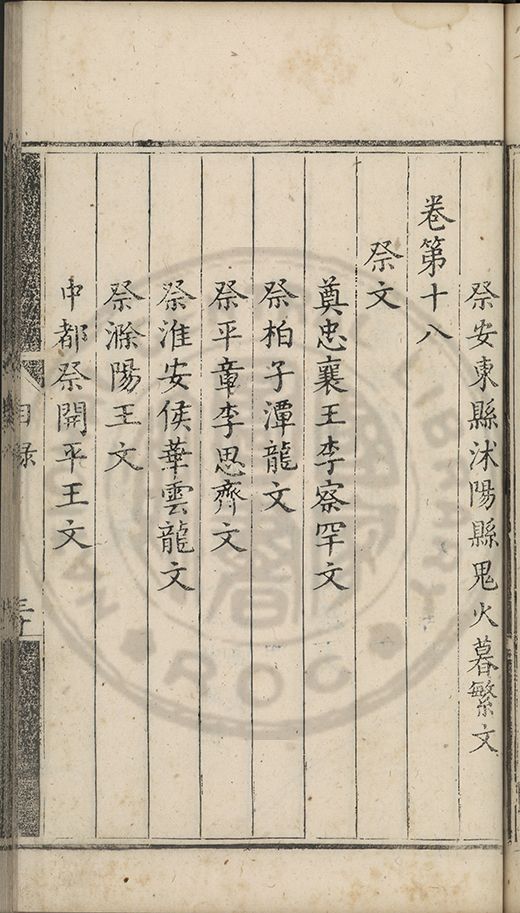 祭安東縣沭陽縣鬼火暮繁文
卷第十八
祭文
奠忠襄王李察罕文
祭柏子潭龍文
祭平章李思齊文
祭淮安侯華雲龍文
祭滁陽王文
中都祭開平王文
目錄